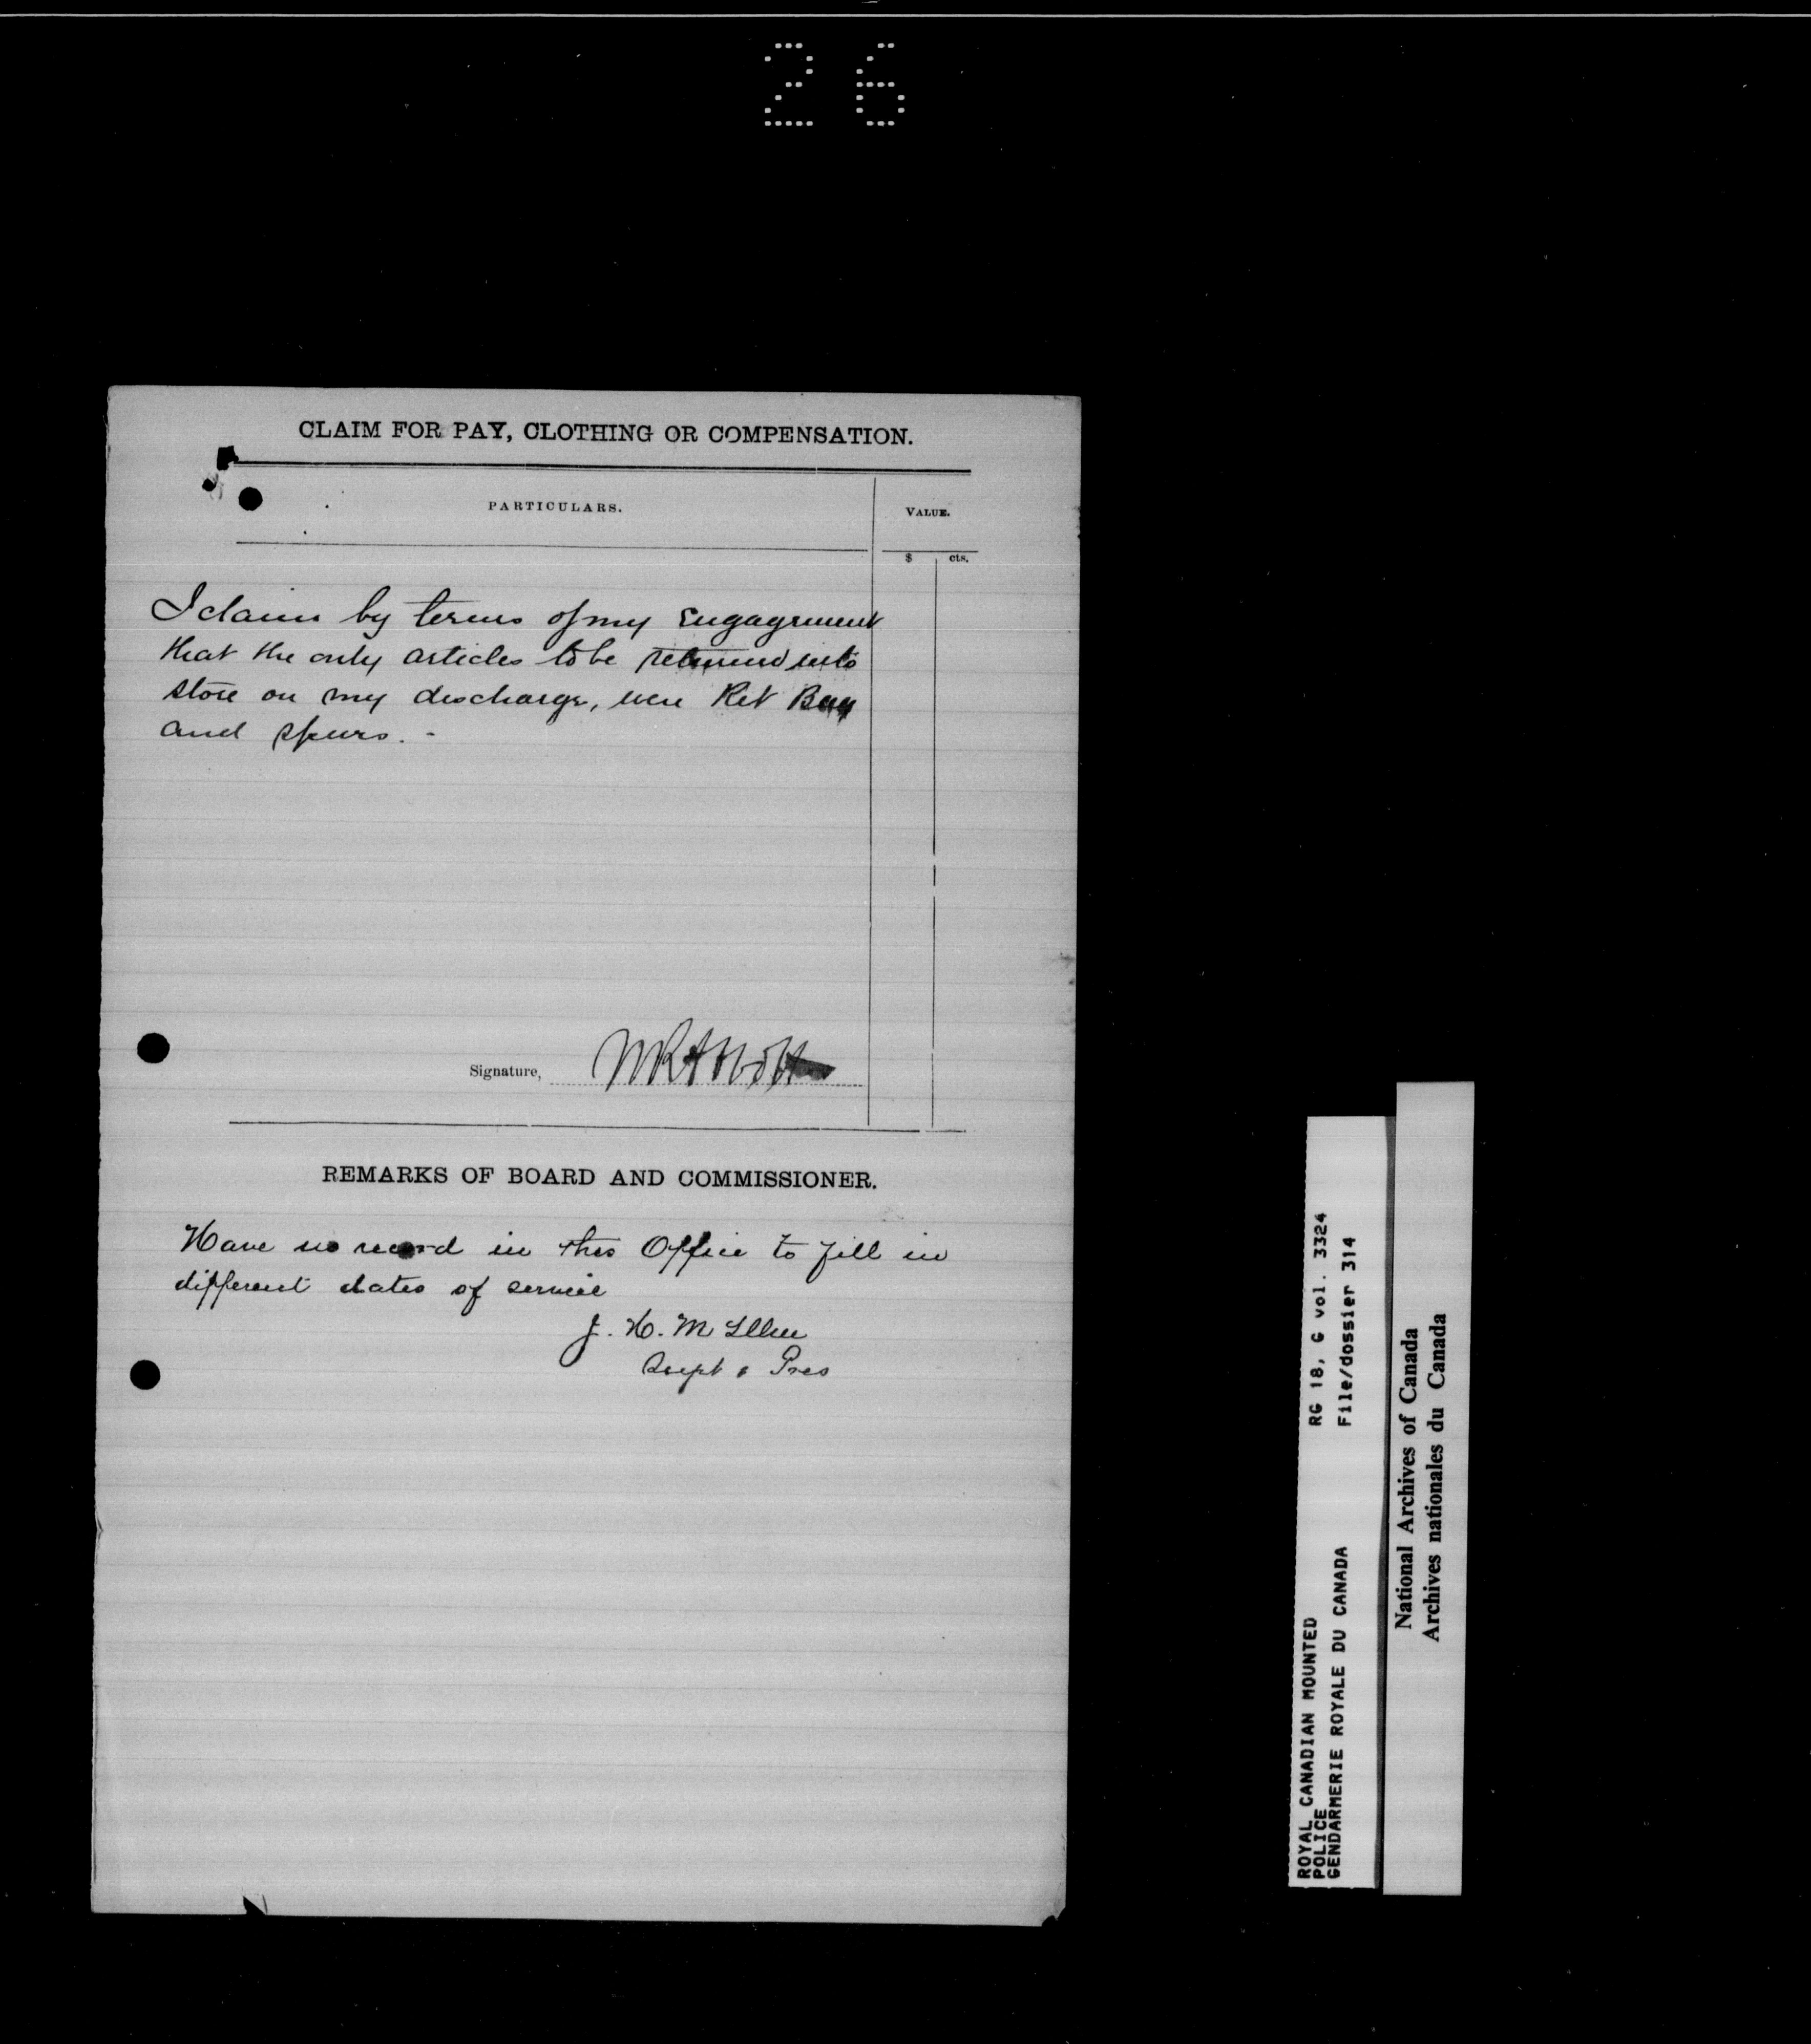 26
CLAIM FOR PAY, CLOTHING OR COMPENSATION.
PARTICULARS.
VALUE.
$ cts.
I claim by terms of my Engagement
that the only articles to be returned into
store on my discharge, were Kit Bag
and spurs. -
Signature, WRAbbott
REMARKS OF BOARD AND COMMISSIONER.
Have no record in this Office to fill in
different dates of service
J. H. McIllree
Supt & Pres
ROYAL CANADIAN MOUNTED
POLICE
GENDARMERIE ROYALE DU CANADA
RG 18, G vol. 3324
File/dossier 314
National Archives of Canada
Archives nationales du Canada